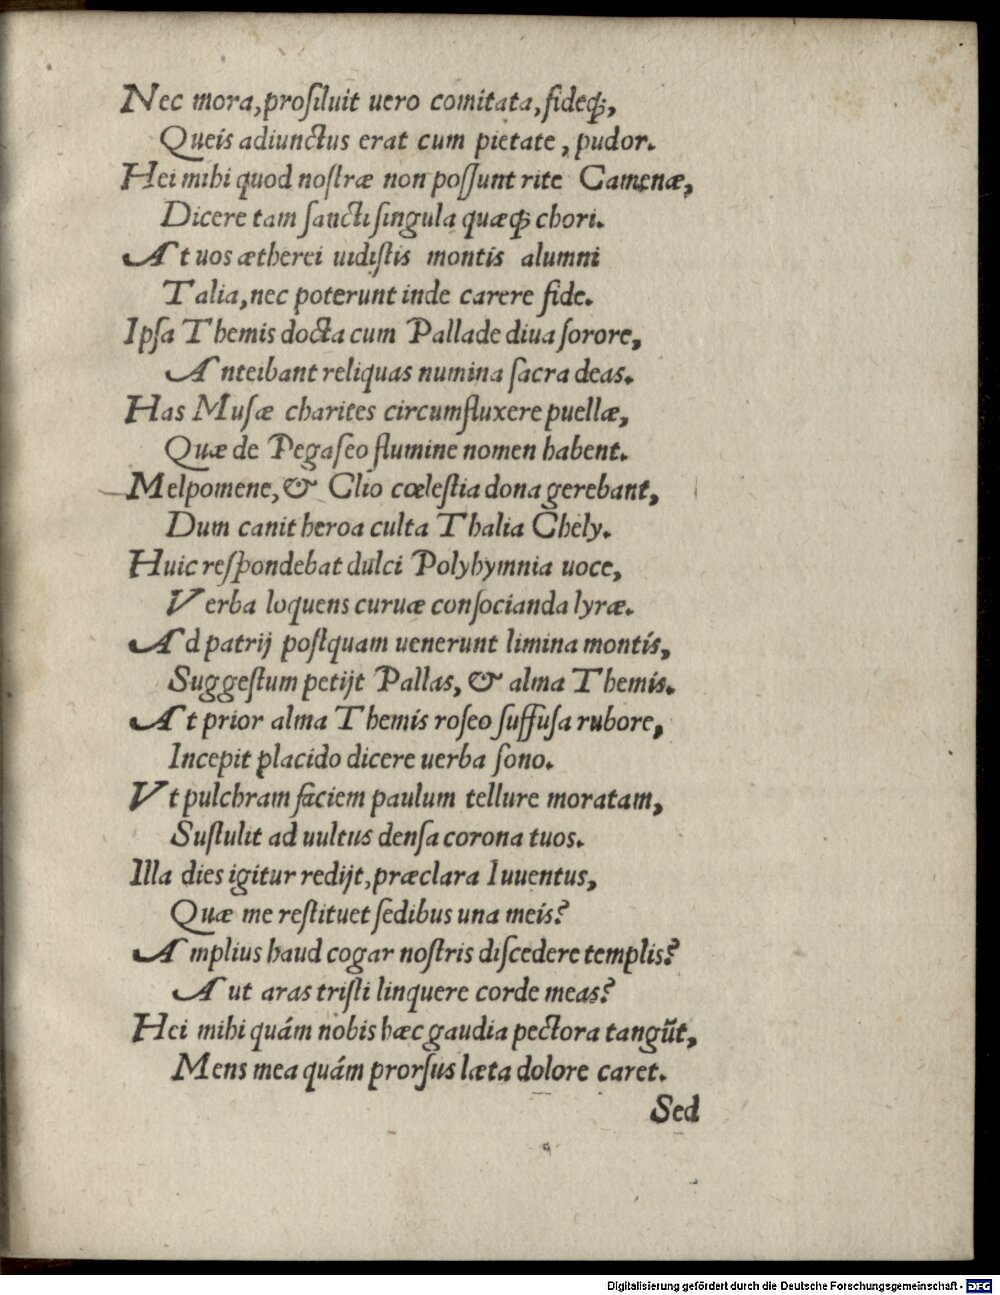 Nec mora, proſiluit uero comitata, fideq́;,
Queis adiunctus erat cum pietate, pudor.
Hei mihi quod noſtræ non poſſunt rite Camenæ,
Dicere tam ſancti ſingula quæq́; chori.
At uos ætherei uidiſtis montis alumni
Talia, nec poterunt inde carere fide.
Ipſa Themis docta cum Pallade diua ſorore,
Anteibant reliquas numina ſacra deas.
Has Muſæ charites circumfluxere puellæ,
Quæ de Pegaſeo flumine nomen habent.
Melpomene, & Clio cœleſtia dona gerebant,
Dum canit heroa culta Thalia Chely.
Huic reſpondebat dulci Polyhymnia uoce,
Verba loquens curuæ conſocianda lyræ.
Ad patrij poſtquam uenerunt limina montis,
Suggeſtum petijt Pallas, & alma Themis.
At prior alma Themis roſeo ſuffuſa rubore,
Incepit placido dicere uerba ſono.
Vt pulchram faciem paulum tellure moratam,
Suſtulit ad uultus denſa corona tuos.
Illa dies igitur redijt, præclara Iuuentus,
Quæ me reſtituet ſedibus una meis?
Amplius haud cogar noſtris diſcedere templis?
Aut aras triſti linquere corde meas?
Hei mihi quám nobis hæc gaudia pectora tangũt,
Mens mea quám prorſus læta dolore caret.
Sed
Digitalisierung gefördert durch die Deutsche Forschungsgemeinschaft - DFG